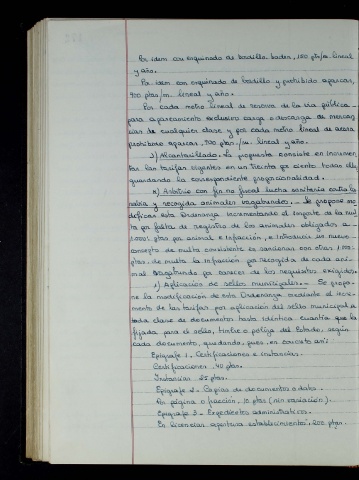 Por idem con esquinado de bordillo baden, 150 pts/m. lineal
y año.
Por idem con esquinado de bordillo y prohibido aparcar,
400 ptas/m. lineal y año.
Por cada metro lineal de reserva de la vía pública
para aparcamiento exclusivo carga y descarga de mercan
cías de cualquier clase y por cada metro lineal de acera
prohibido aparcar, 700 ptas./m. lineal y año.
J) Alcantarillado. La propuesta consiste en incremen
tar las tarifas vigentes en un treinta por ciento todas ellas
guardando la correspondiente proporcionalidad.
K) Arbitrio con fin no fiscal lucha sanitaria contra la
rabia y recogida animales vagabundos. - Se propone mo
dificar esta Ordenanza incrementando el importe de la mul
ta por falta de registro de los animales obligados a
1.000 ptas por animal e infracción, e introducir un nuevo
concepto de multa consistente en sancionar con otras 1.000
ptas. de multa la infracción por recogida de cada ani-
mal vagabundo que carece de los requisitos exigidos.
L) Aplicación de sellos municipales. - Se propo-
ne la modificación de esta Ordenanza mediante el incre-
mento de las tarifas por aplicación del sello municipal a
toda clase de documentos hasta idéntica cuantía que la
fijada para el sello, timbre o póliza del Estado, según
cada documento, quedando, pues, en concreto así:
Epígrafe 1. Certificaciones e instancias.
Certificaciones, 40 ptas.
Instancias 25 ptas.
Epígrafe 2 - Copias de documentos o datos.
Por página o fracción, 10 ptas (sin variación).
Epígrafe 3 - Expedientes administrativos.
En licencias apertura establecimientos, 200 ptas.